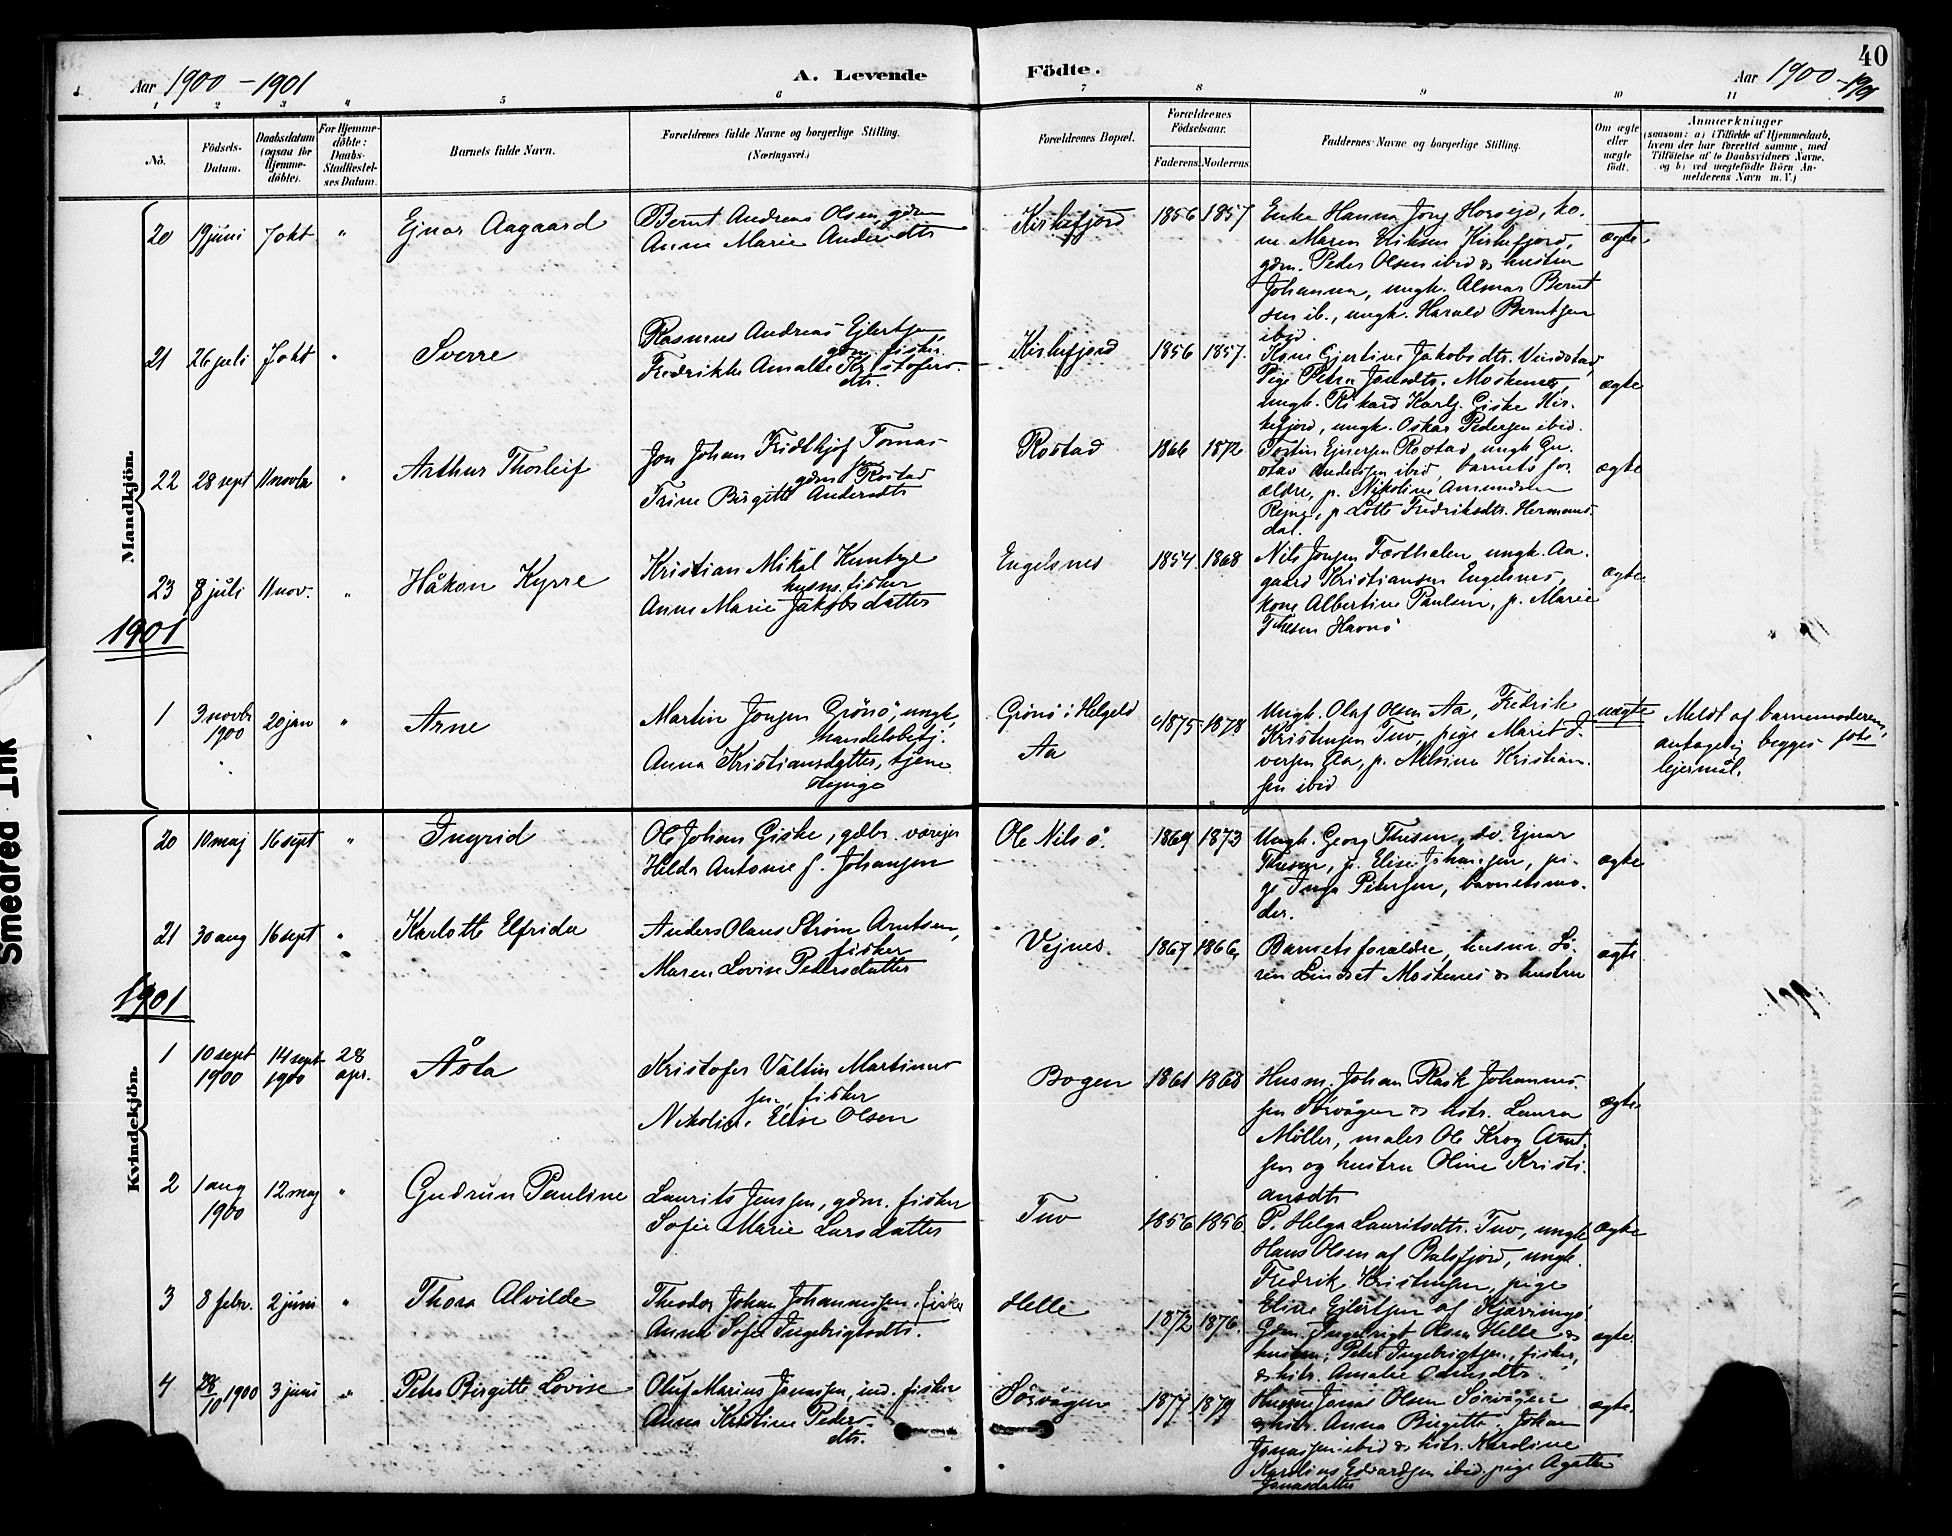 40
Aar 1900 - 1901
A. Levende Födte.
Aar 1900 - 1901
1 2 3 4 5 6 7 8 9 10 11
No.
Födsels-Datum.
Daabsdatum (ogsaa for Hjemmedöbte).
For Hjemmedöbte: Daabs-Stadfæstelses Datum.
Barnets fulde Navn.
Forældrenes fulde Navne og borgerlige Stilling.
(Næringsvei.)
Forældrenes Bopæl.
Forældrenes Födselsaar.
Faderens. Moderens.
Faddernes Navne og borgerlige Stilling.
Om ægte eller uægte födt.
Anmærkninger
(saasom: a) i Tilfælde af Hjemmedaab,
hvem der har forrettet samme, med
Tilföielse af to Daabsvidners Navne,
og b) ved uægtefödte Börn An-
melderens Navn m. V.)
Mandkjön.
20 19 juni 7 okt " Ejnar Aagaard
Bernt Andreas Olsen gdm
Anne Marie Andersdtr
Kirkefjord 1856 1857
Enke Hanna Jörg. Horseid, ko-
ne Maren Eliksen Kirkefjord,
gdm. Peder Olsen ibid & hustru
Johanna, ungk. Almar Bernt
sen ib., ungk. Harald Berntsen
ibid
ægte
21 26 juli 7 okt " Sverre
Rasmus Andreas Ejlertsen
gdm. fisker
Fredrikke Amalie Kristofers-
dtr.
Kirkefjord 1856 1857.
Kone Gjertine Jakobsdtr. Vindstad,
Pige Petra Jensdtr. Moskenes,
ungk. Rikard Karls. Giske Kir-
kefjord, ungk. Oskar Pedersen ibid.
ægte
22 28 sept 11 novbr " Arthur Thorleif
Jon Johan Fridthjof Tomas-
sen
gdm Rostad
Trine Birgitte Andersdtr
Rostad 1866 1872
Ejnersen Rostad, ungk Gu-
stav Andersen ibid, barnets for
ældre, p. Nikoline Amundsen
Rejne, p Lotte Fredriksdtr. Hermans-
dal.
ægte
23 8 juli 11 nov. " Håkon Kyrre
Kristian Mikal
husm. fisker
Anne Marie Jakobsdatter
Engelsnes 1854 1868
Nils Jensen ungk. Aa-
gaard Kristiansen Engelsnes,
kone Albertine Paulsen, p. Marie
Thesen Havnö
ægte
1901
1 3 novbr 1900 20 jan " Arne
Martin Jensen Grönö, ungk,
handelsbetj.
Anna Kristiansdatter, tjener
Rejnge
Grönö i Helgeld
Aa
1875 1878
Ungk. Olaf Olsen Aa, Fredrik
Kristensen Tuv, pige Marit I-
versen Aa, p. Nilsine Kristian-
sen ibid
uægte
Meldt af barnemoderen,
antagelig begges 1ste
lejermål.
Kvindekjön.
20 10 maj 16 sept " Ingrid
Ole Johan Giske, gdbr. værejer
Hilda Antonie f. Johansen
Ole Nilsö. 1869 1873
Ungk. Georg Thesen, do. Ejnar
Thesen, p. Elise Johansen, pi-
ge Inga Petersen, barnets mo-
der.
ægte
21 30 aug 16 sept " Karlotte Elfrida
Anders Olaus Strøm Arntsen,
fisker
Maren Lovise Pedersdatter
Vejnes 1867 1866
Barnets forældre, husm. Sö-
ren Lindset Moskenes & hustru
ægte
1901
1 10 sept 1900 14 sept 1900 28 apr. Åsta
Kristofer Valtin Martinus-
sen, fisker
Nikoline Elise Olsen
Bogen 1861 1868
Husm. Johan Rask Johannes-
sen Sörvågen & hstr. Laura
Møller, maler Ole Krog Arnt-
sen og hustru Oline Kristi-
ansdtr
ægte
2 1 aug 1900 12 maj " Gudrun Pauline
Laurits Jenssen, gdm. fisker
Sofie Marie Larsdatter
Tuv 1856 1856.
P. Helga Lauritsdtr. Tuv, ungk
Hans Olsen af Balsfjord, ungk.
Fredrik Kristensen, pige
Eline Ejlertsen af Kjærringö
ægte
3 8 febr. 2 juni " Thora Alvilde
Theodor Johan Johannessen, fisker
Anna Sofie Ingebrigtsdtr.
Helle 1872 1876.
Gdm. Ingebrigt Olsen Helle &
hustru, Peter Ingebrigtsen, fisker,
& hstr. Amalie
ægte
4 /10 1900 3 juni " Petra Birgitte Lovise
Oluf Marius Jonassen, ind. fisker
Anna Kristine Peders-
dtr.
Sörvågen 1877 1879
Husm Jonas Olsen Sörvågen
& hstr. Anna Birgitte, Johan
Jonassen ibid & hstr. Karoline
Karolius Edvardsen ibid, pige Agathe
Jonasdatter
ægte.
Smeared Ink